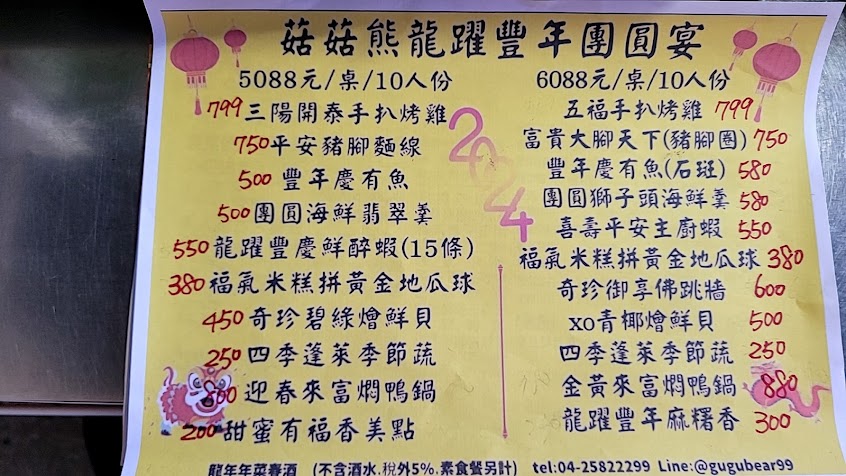 菇菇熊龍躍豐年團圓宴
5088元/桌/10人份
799三陽開泰手扒烤雞
750平安豬腳麵線
500 豐年慶有魚
500團圓海鮮翡翠羹
550龍躍豐慶鮮醉蝦(15條)
380福氣米糕拼黃金地瓜球
450奇珍碧綠燴鮮貝
250四季蓬萊季節蔬
迎春來富燜鴨鍋
200甜蜜有福香美點
2024
6088元/桌/10人份
五福手扒烤雞 799
富貴大腳天下(豬腳圈)750
豐年慶有魚(石斑) 580
團圓獅子頭海鮮羹 580
喜壽平安主廚蝦 550
福氣米糕拼黃金地瓜球 380
奇珍御享佛跳牆 600
xo青椰燴鮮貝 500
四季蓬萊季節蔬 250
金黃來富燜鴨鍋 880
龍躍豐年麻糬香 300
龍年年菜春酒 (不含酒水.稅外5%.素食餐另計) tel:04-25822299 Line:@gugubear99